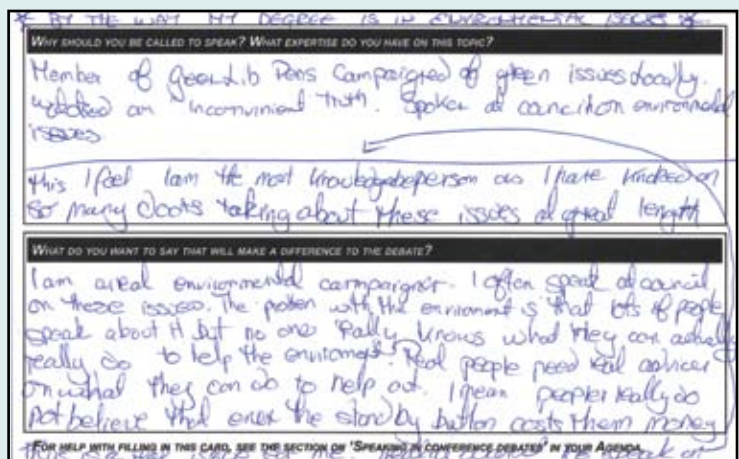 * BY THE WAY MY DEGREE IS IN ENVIRONMENTAL ISSUES *
WHY SHOULD YOU BE CALLED TO SPEAK? WHAT EXPERTISE DO YOU HAVE ON THIS TOPIC?
Member of Green Lib Dems Campaigned of green issues locally.
watched an inconvinient truth. Spoken at council on environmental
issues
this I feel I am the most knowledgable person as I have knocked on
so many doors talking about these issues at great length
WHAT DO YOU WANT TO SAY THAT WILL MAKE A DIFFERENCE TO THE DEBATE?
I am a real environmental campaigner. I often speak at council
on these issues. The problem with the environment is that lots of people
speak about it but no one really knows what they can actually
really do to help the environment. Real people need real advice
on what they can do to help out. I mean people really do
not believe that even the standby button costs them money
FOR HELP WITH FILLING IN THIS CARD, SEE THE SECTION ON 'SPEAKING IN CONFERENCE DEBATES' IN YOUR AGENDA.
This is a key issue for me. speak on